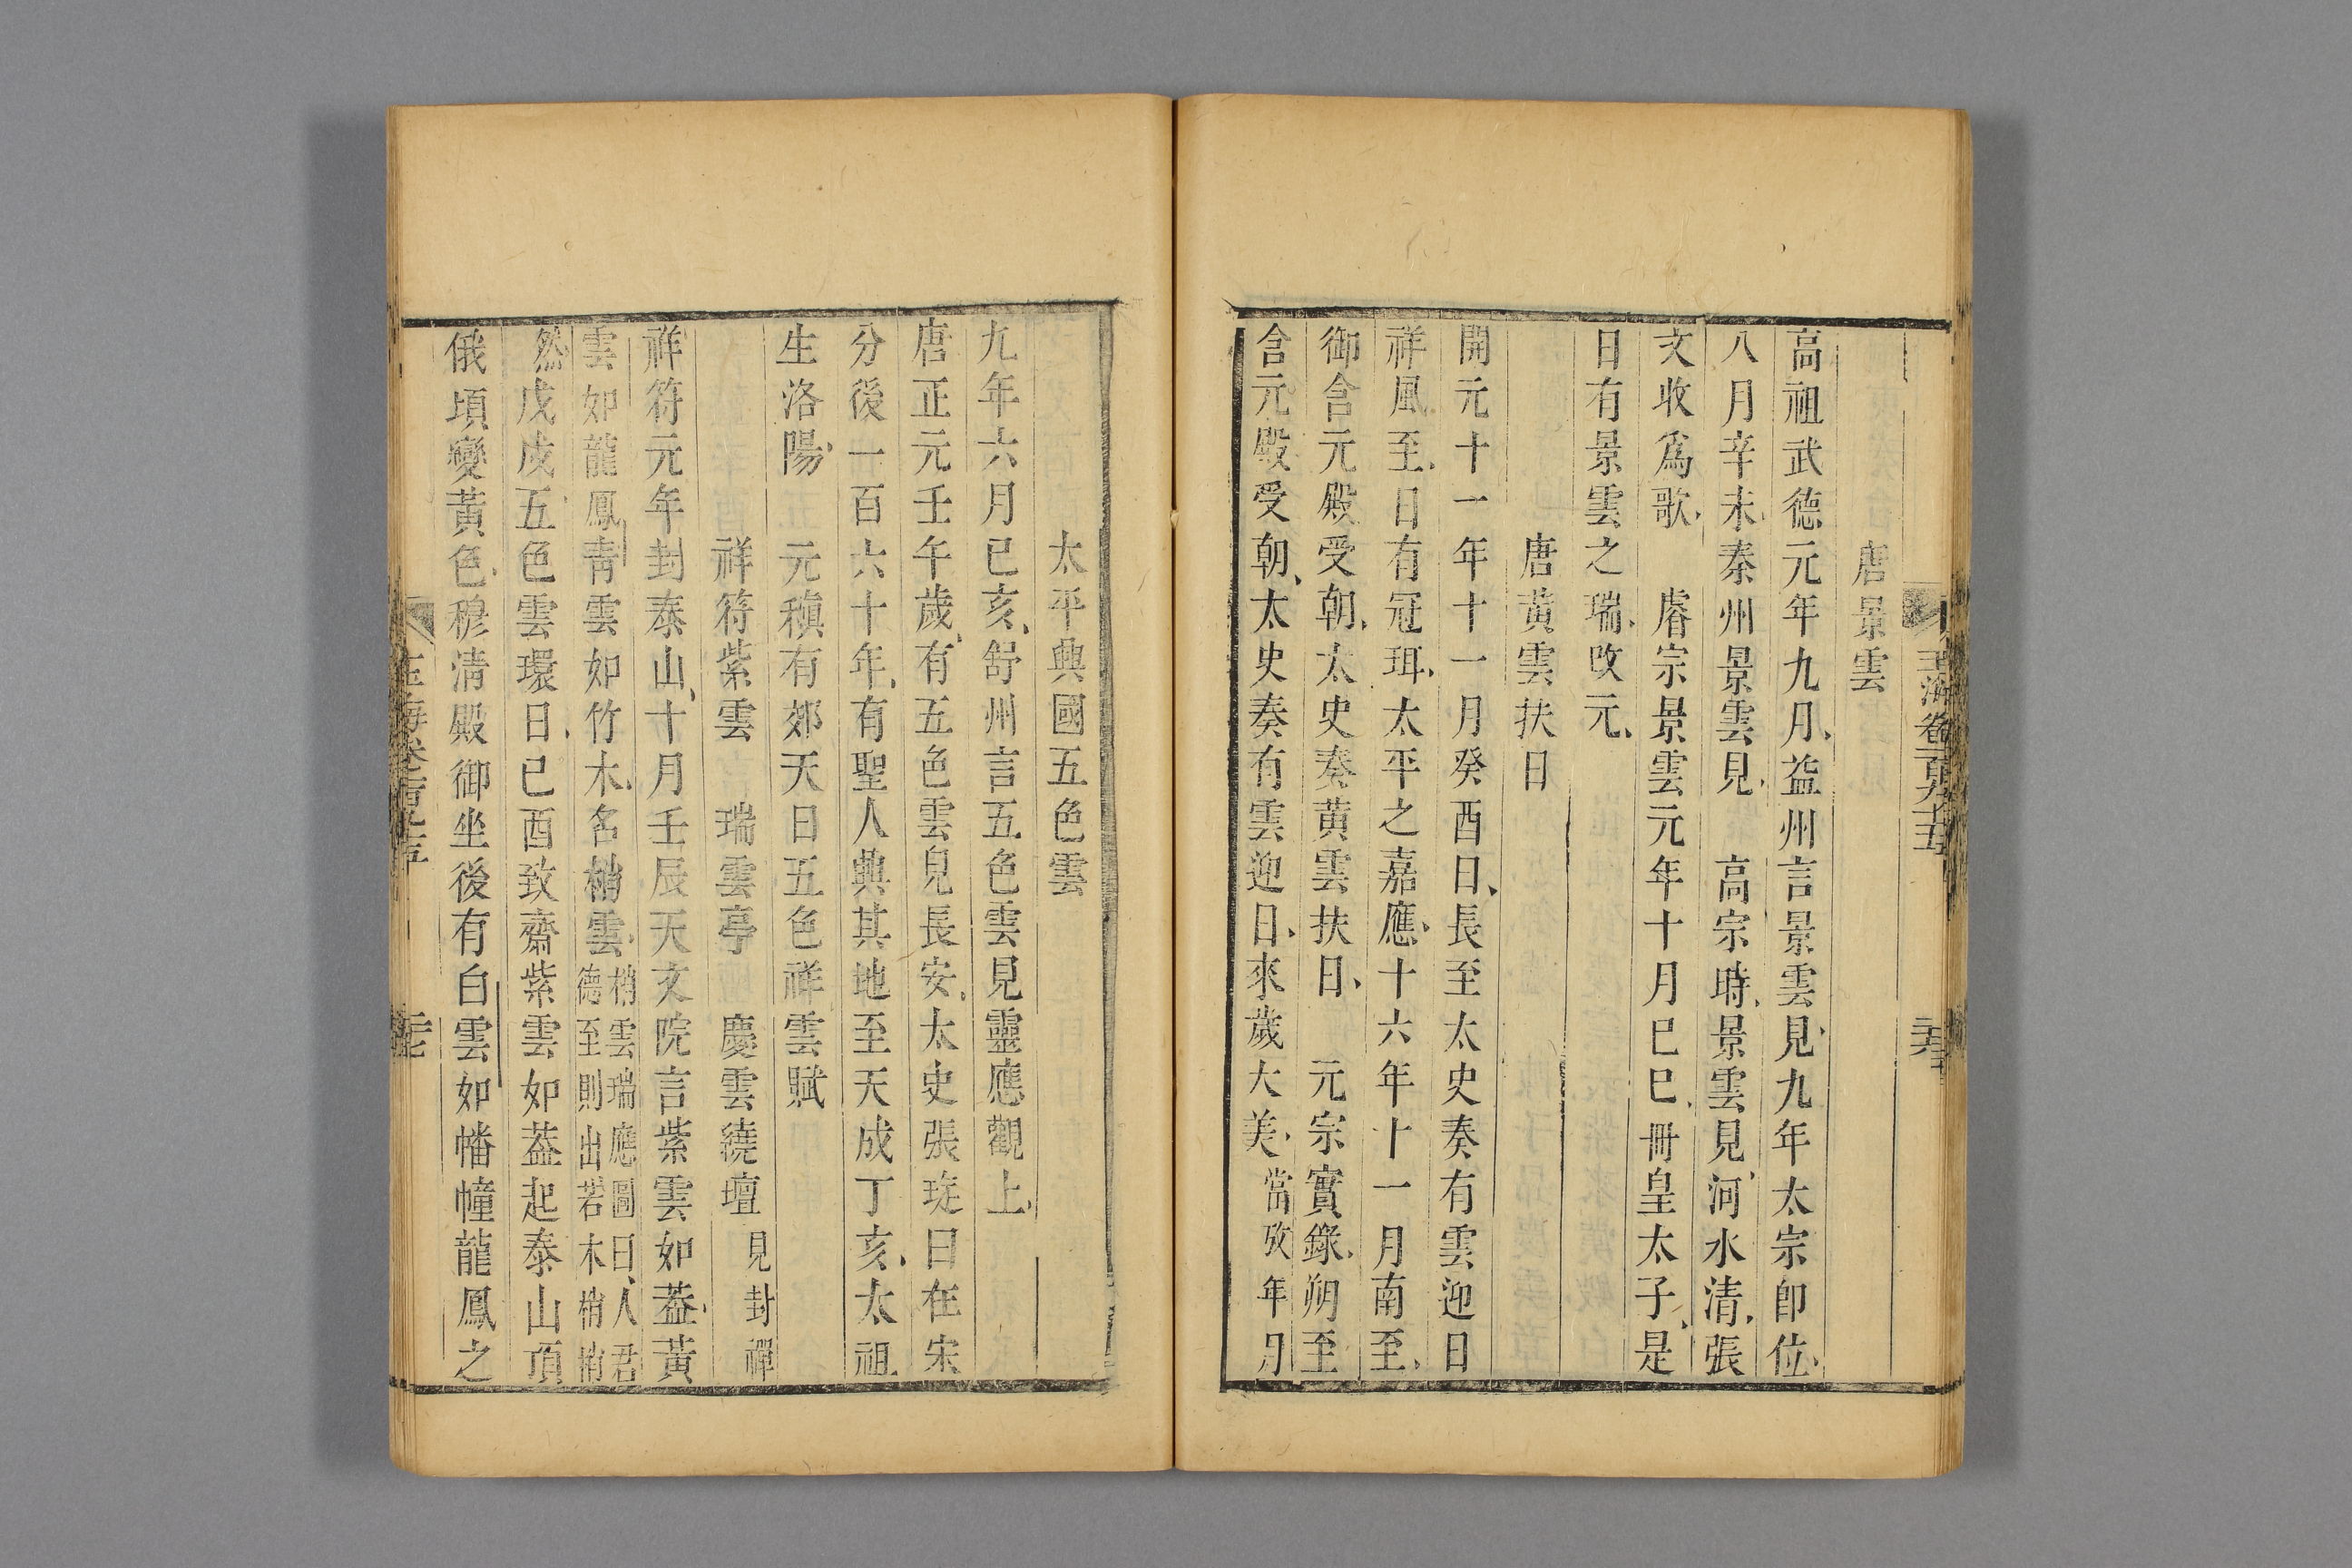 玉海卷一百九十五
二十六
唐景雲
高祖武德元年九月益州言景雲見九年太宗卽位
八月辛未秦州景雲見 高宗時景雲見河水清張
文收爲歌 睿宗景雲元年十月巳巳冊皇太子是
日有景雲之瑞改元
唐黃雲扶日
開元十一年十一月癸酉日長至太史奏有雲迎日
祥風至日有冠珥太平之嘉應十六年十一月南至
御含元殿受朝太史奏黃雲扶日 元宗實錄朔至
含元殿受朝太史奏有雲迎日來歲大美當攷年月
太平興國五色雲
九年六月已亥舒州言五色雲見靈應觀上
唐正元壬午歲有五色雲見長安太史張琁曰在宋
分後一百六十年有聖人興其地至天成丁亥太祖
生洛陽 元稹有郊天日五色祥雲賦
祥符紫雲 瑞雲亭 慶雲繞壇 見封禪
祥符元年封泰山十月壬辰天文院言紫雲如葢黃
雲如龍鳳靑雲如竹木名梢雲梢雲瑞應圖曰人君德至則出若木梢梢
然戊戌五色雲環日已酉致齋紫雲如葢起泰山頂
俄頃變黃色穆清殿御坐後有白雲如幡幢龍鳳之
玉海卷一百九十五
二十七